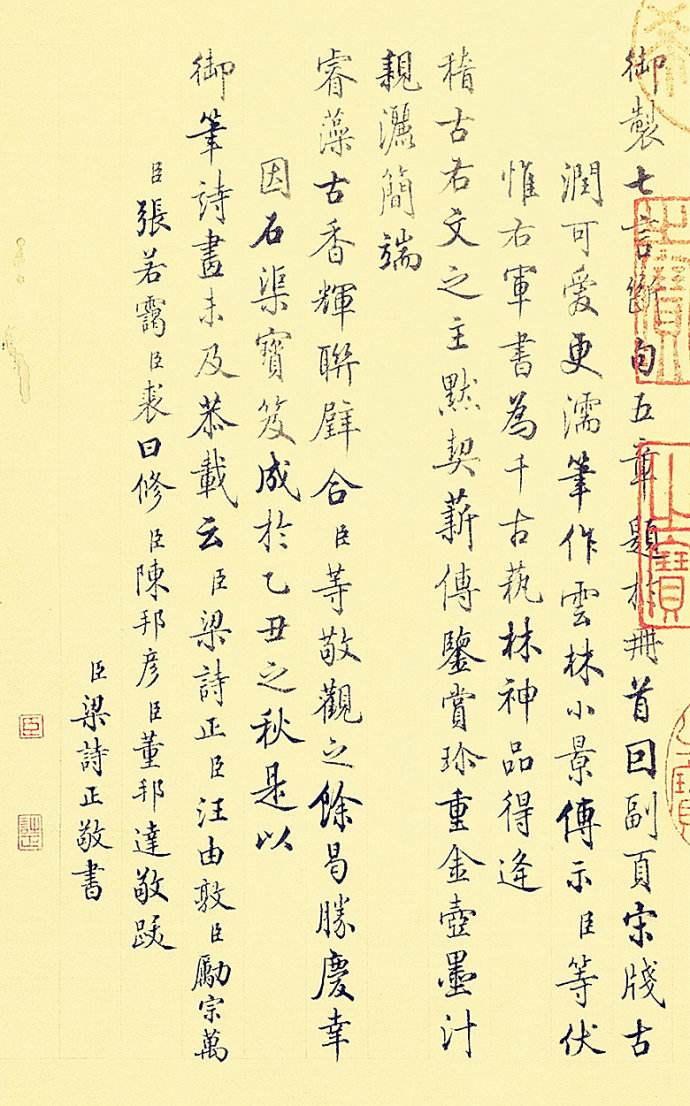 御製七言斷句五章題於冊首囙副頁宋牋古
潤可愛更濡筆作雲林小景傳示臣等伏
惟右軍書為千古蓺林神品得逢
稽古右文之主默契薪傳鑒賞珍重金壺墨汁
親灑簡端
睿藻古香輝聯璧合臣等敬觀之餘曷勝慶幸
因石渠寶笈成於乙丑之秋是以
御筆詩畫未及恭載云臣梁詩正臣汪由敦臣勵宗萬
臣張若靄臣裘曰修臣陳邦彥臣董邦達敬跋
臣梁詩正敬書
臣
詩正